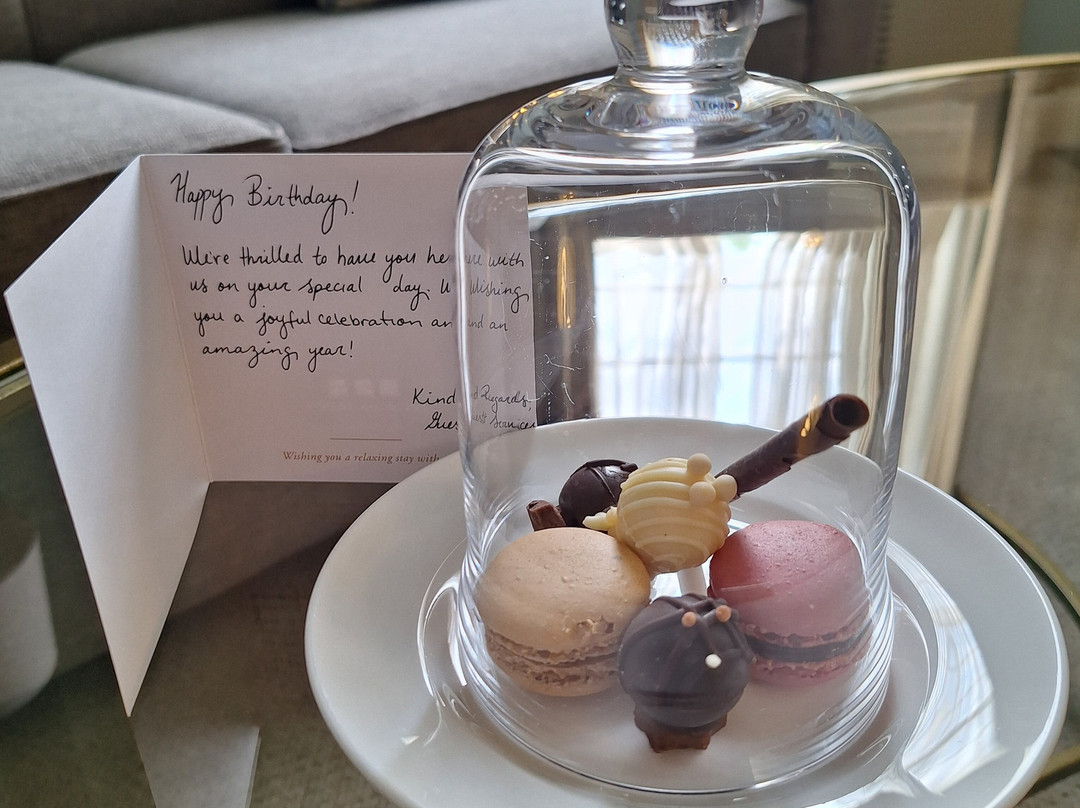 Happy Birthday!
We're thrilled to have you here with
us on your special day. Wishing
you a joyful celebration and an
amazing year!
Kind Regards,
Guest Services
Wishing you a relaxing stay with